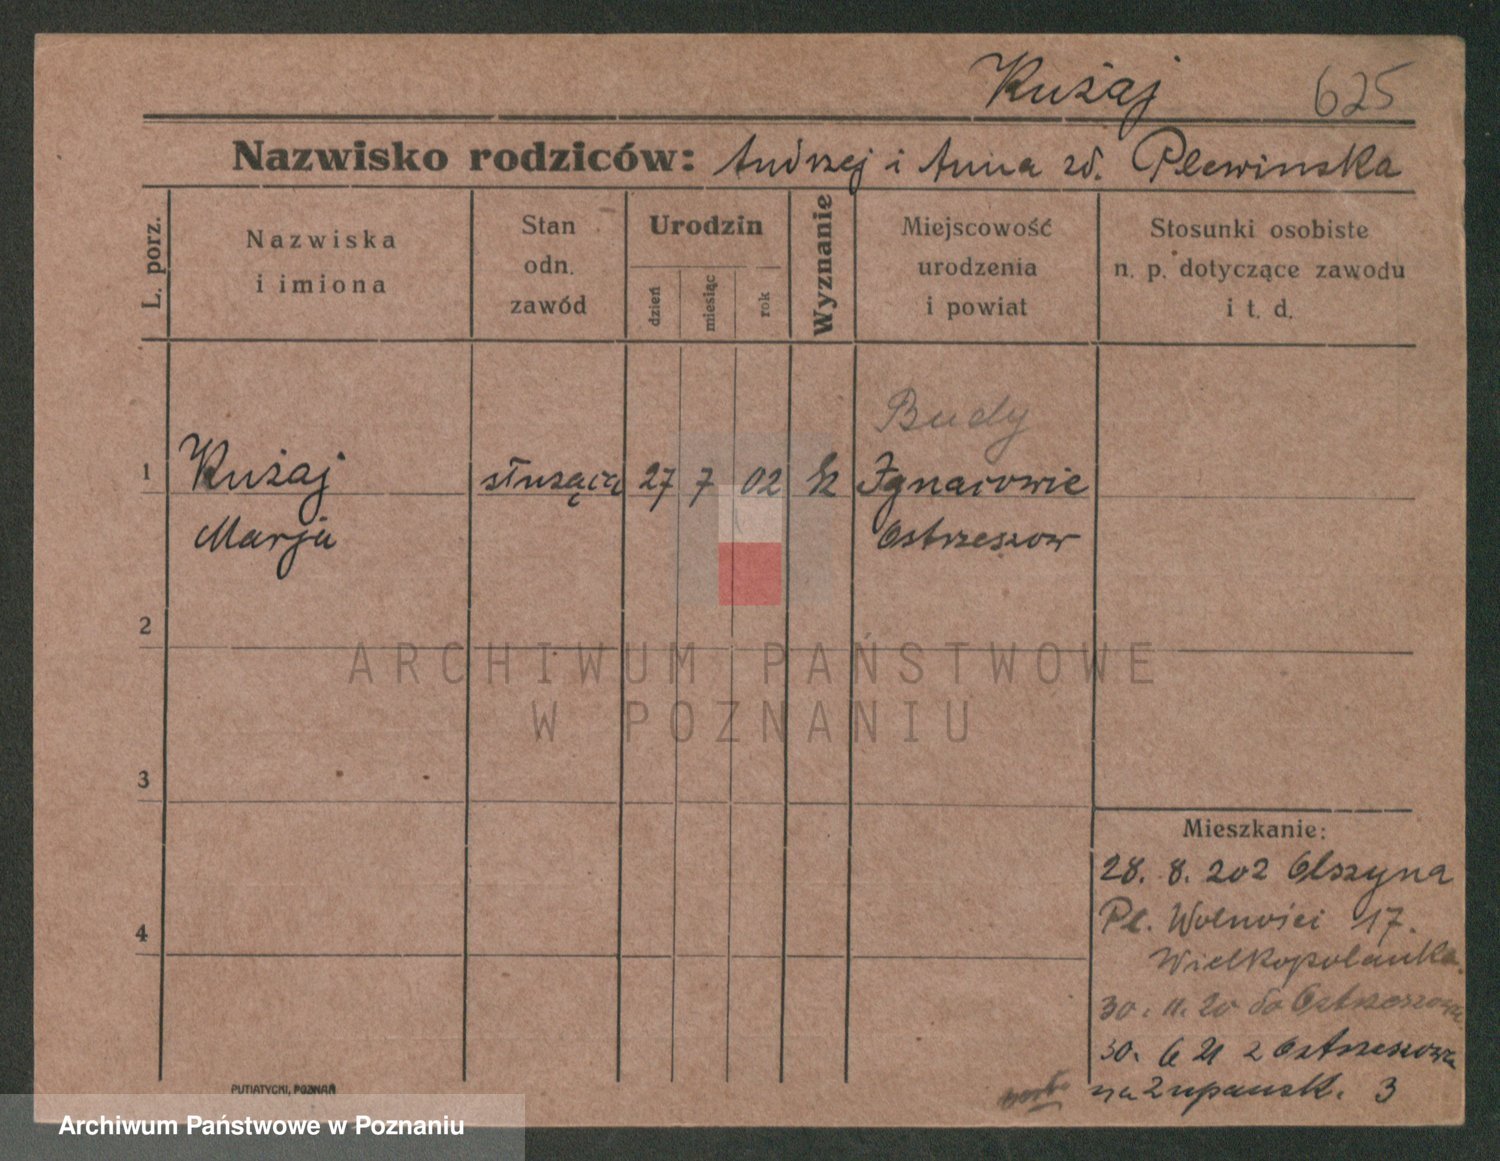 Kużaj 625
Nazwisko rodziców: Andrzej i Anna zd. Plewinska
L. porz.
Nazwiska
i imiona
Stan
odn.
zawód
Urodzin
dzień
miesiąc
rok
Wyznanie
Miejscowość
urodzenia
i powiat
Stosunki osobiste
n. p. dotyczące zawodu
i t. d.
Budy
1 Kużaj służąca 27 7 02 k Ignacowie
Marja Ostrzeszow
2
ARCHIWUM PAŃSTWOWE
W POZNANIU
3
Mieszkanie:
28. 8. 202 Olszyna
4
Pl. Wolności 17.
Wielkopolanka.
30. 11. 20 do Ostrzeszowa
30. 6 21 z Ostrzeszowa
na Zupansk. 3
PUTIATYCKI, POZNAŃ
Archiwum Państwowe w Poznaniu